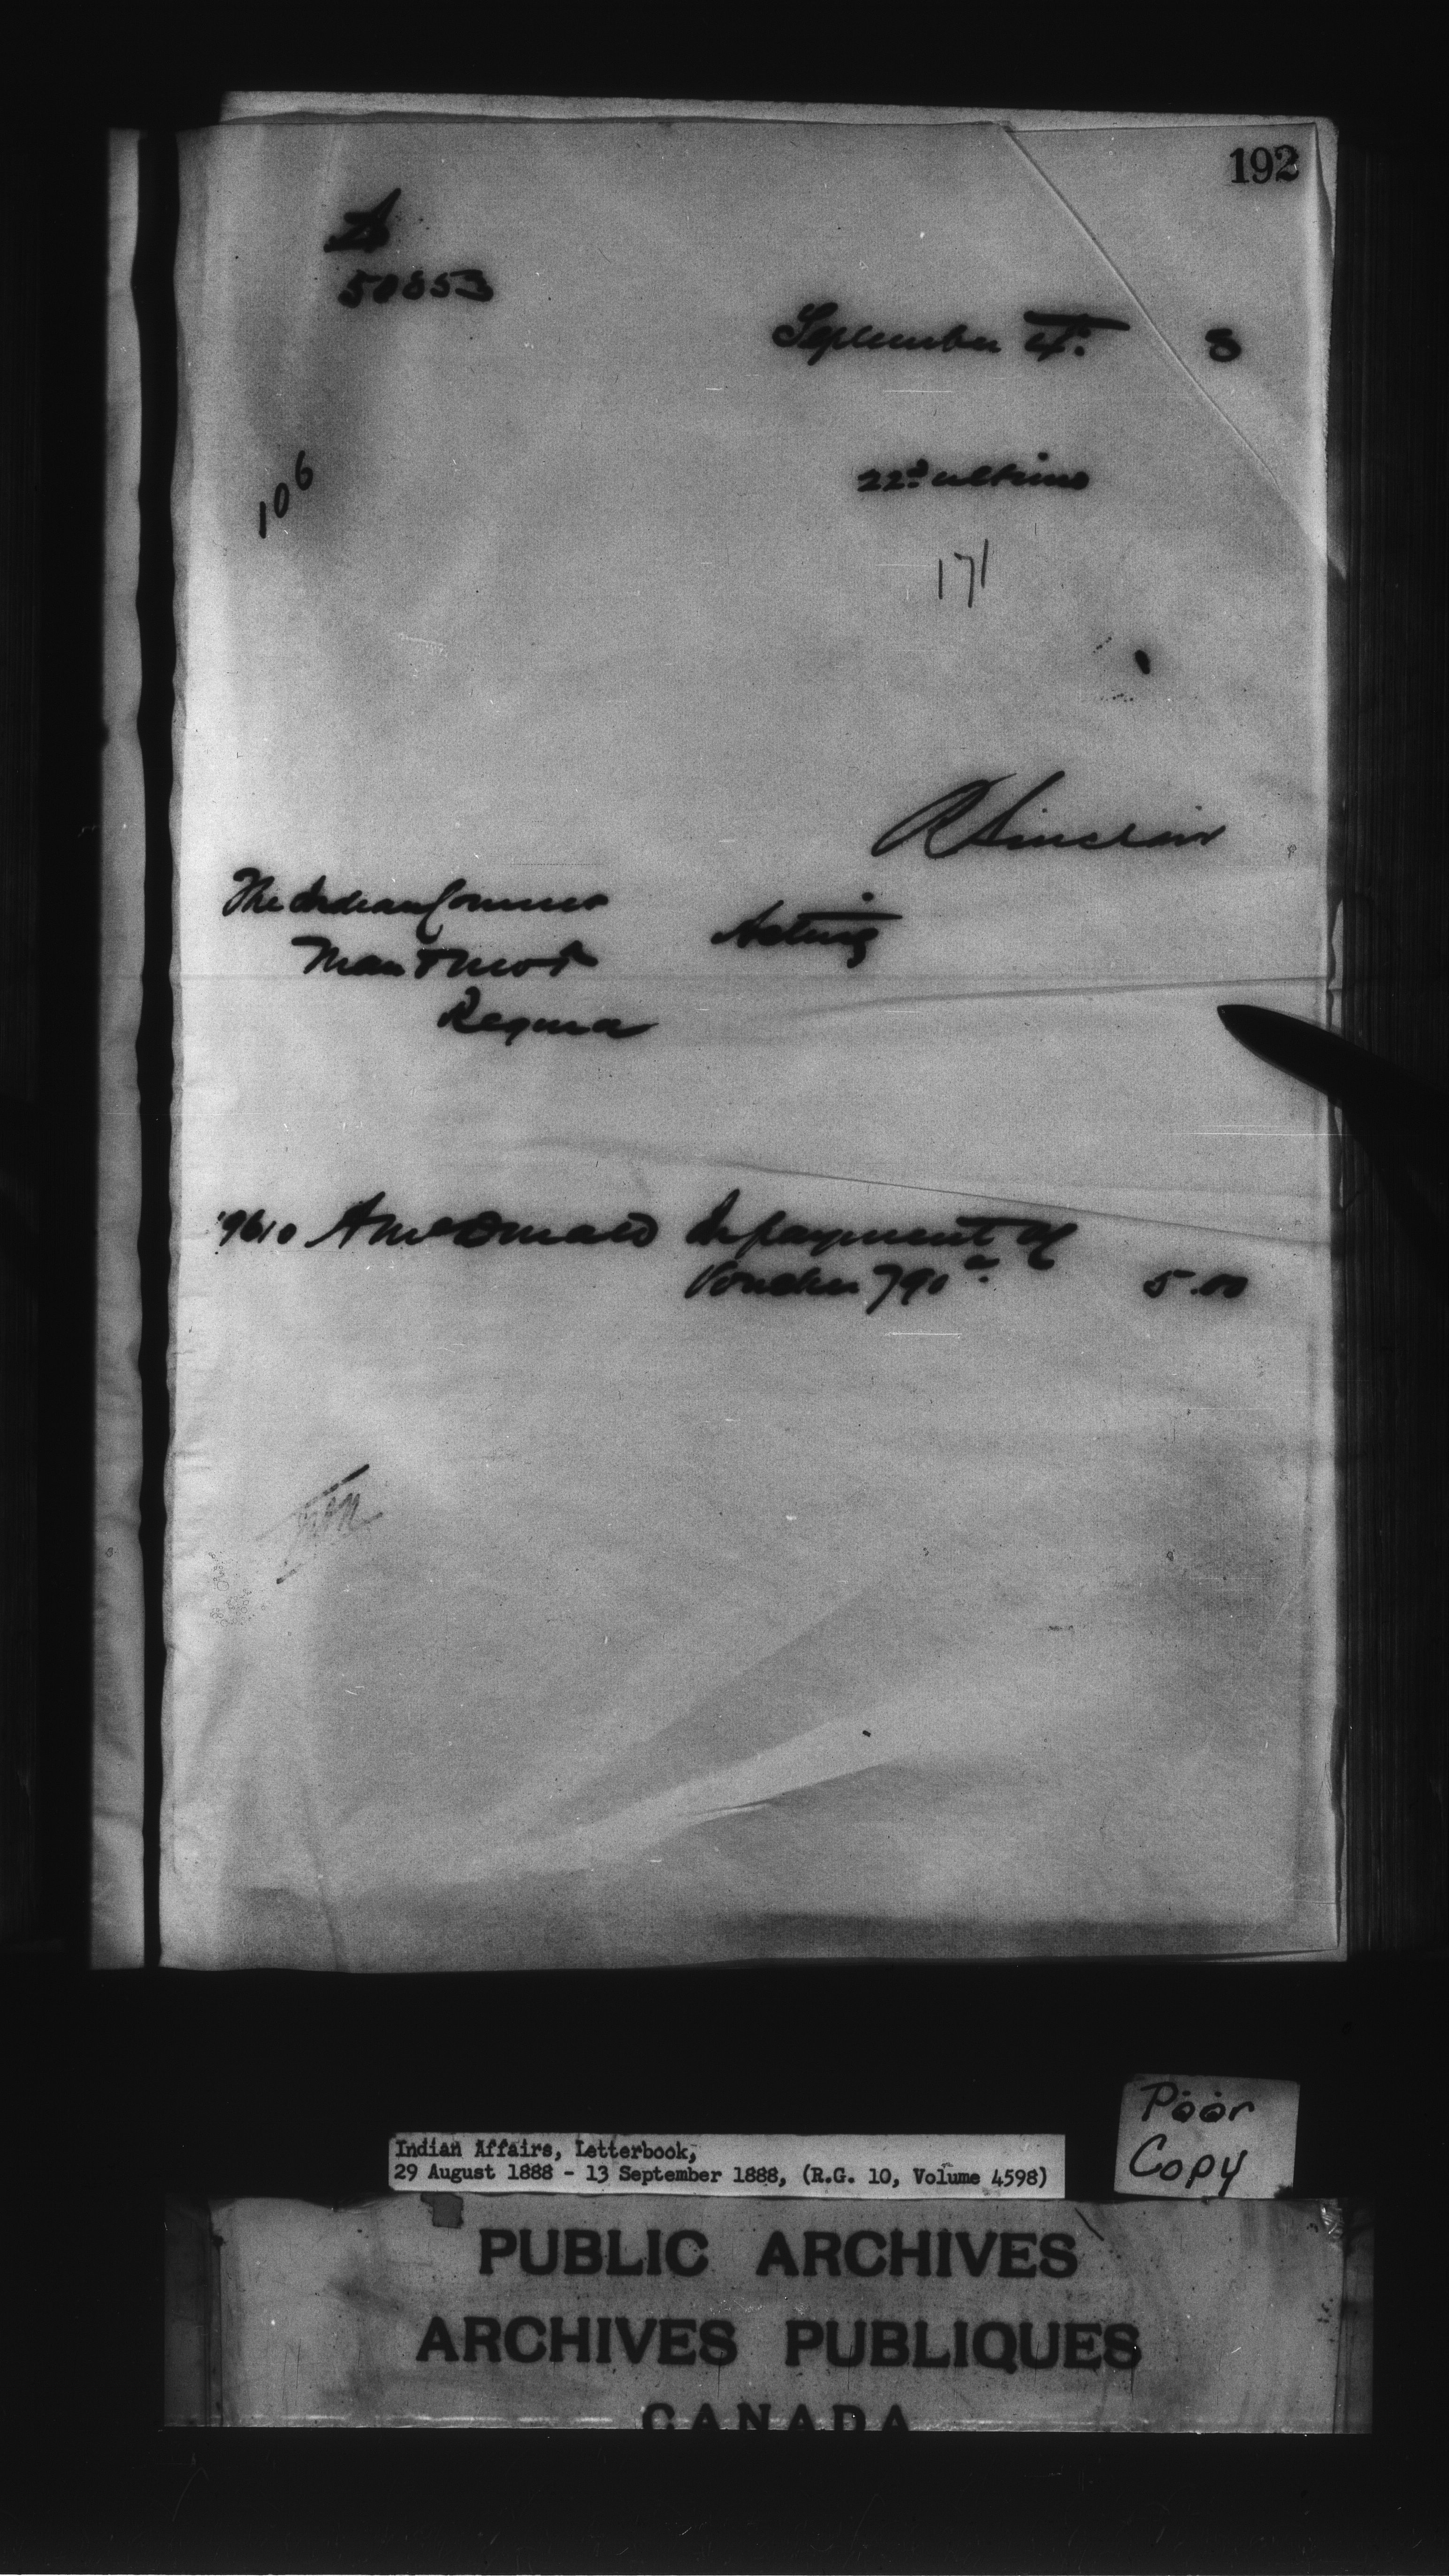 192
A
50853
September 4th. 8
106
22d ultimo
171
R Sinclair
The Indian Commr
Acting
Man & NWT
Regina
9610 A McDonald In payment of
Voucher 790a. 5.00
Poor
Copy
Indian Affairs, Letterbook,
29 August 1888 - 13 September 1888, (R.G. 10, Volume 4598)
PUBLIC ARCHIVES
ARCHIVES PUBLIQUES
CANADA